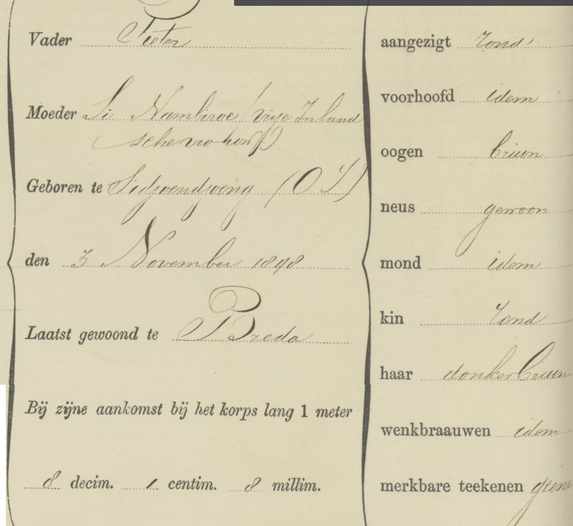 Vader Pieter
Moeder Si Namliroe (vrije Inland
sche vrouw)
Geboren te Sidjoendjoeng (O I)
den 3 November 1848
Laatst gewoond te Breda
Bij zijne aankomst bij het korps lang 1 meter
8 decim. 1 centim. 8 millim.
aangezigt rond
voorhoofd idem
oogen bruin
neus gewoon
mond idem
kin rond
haar donkerbruin
wenkbraauwen idem
merkbare teekenen geene